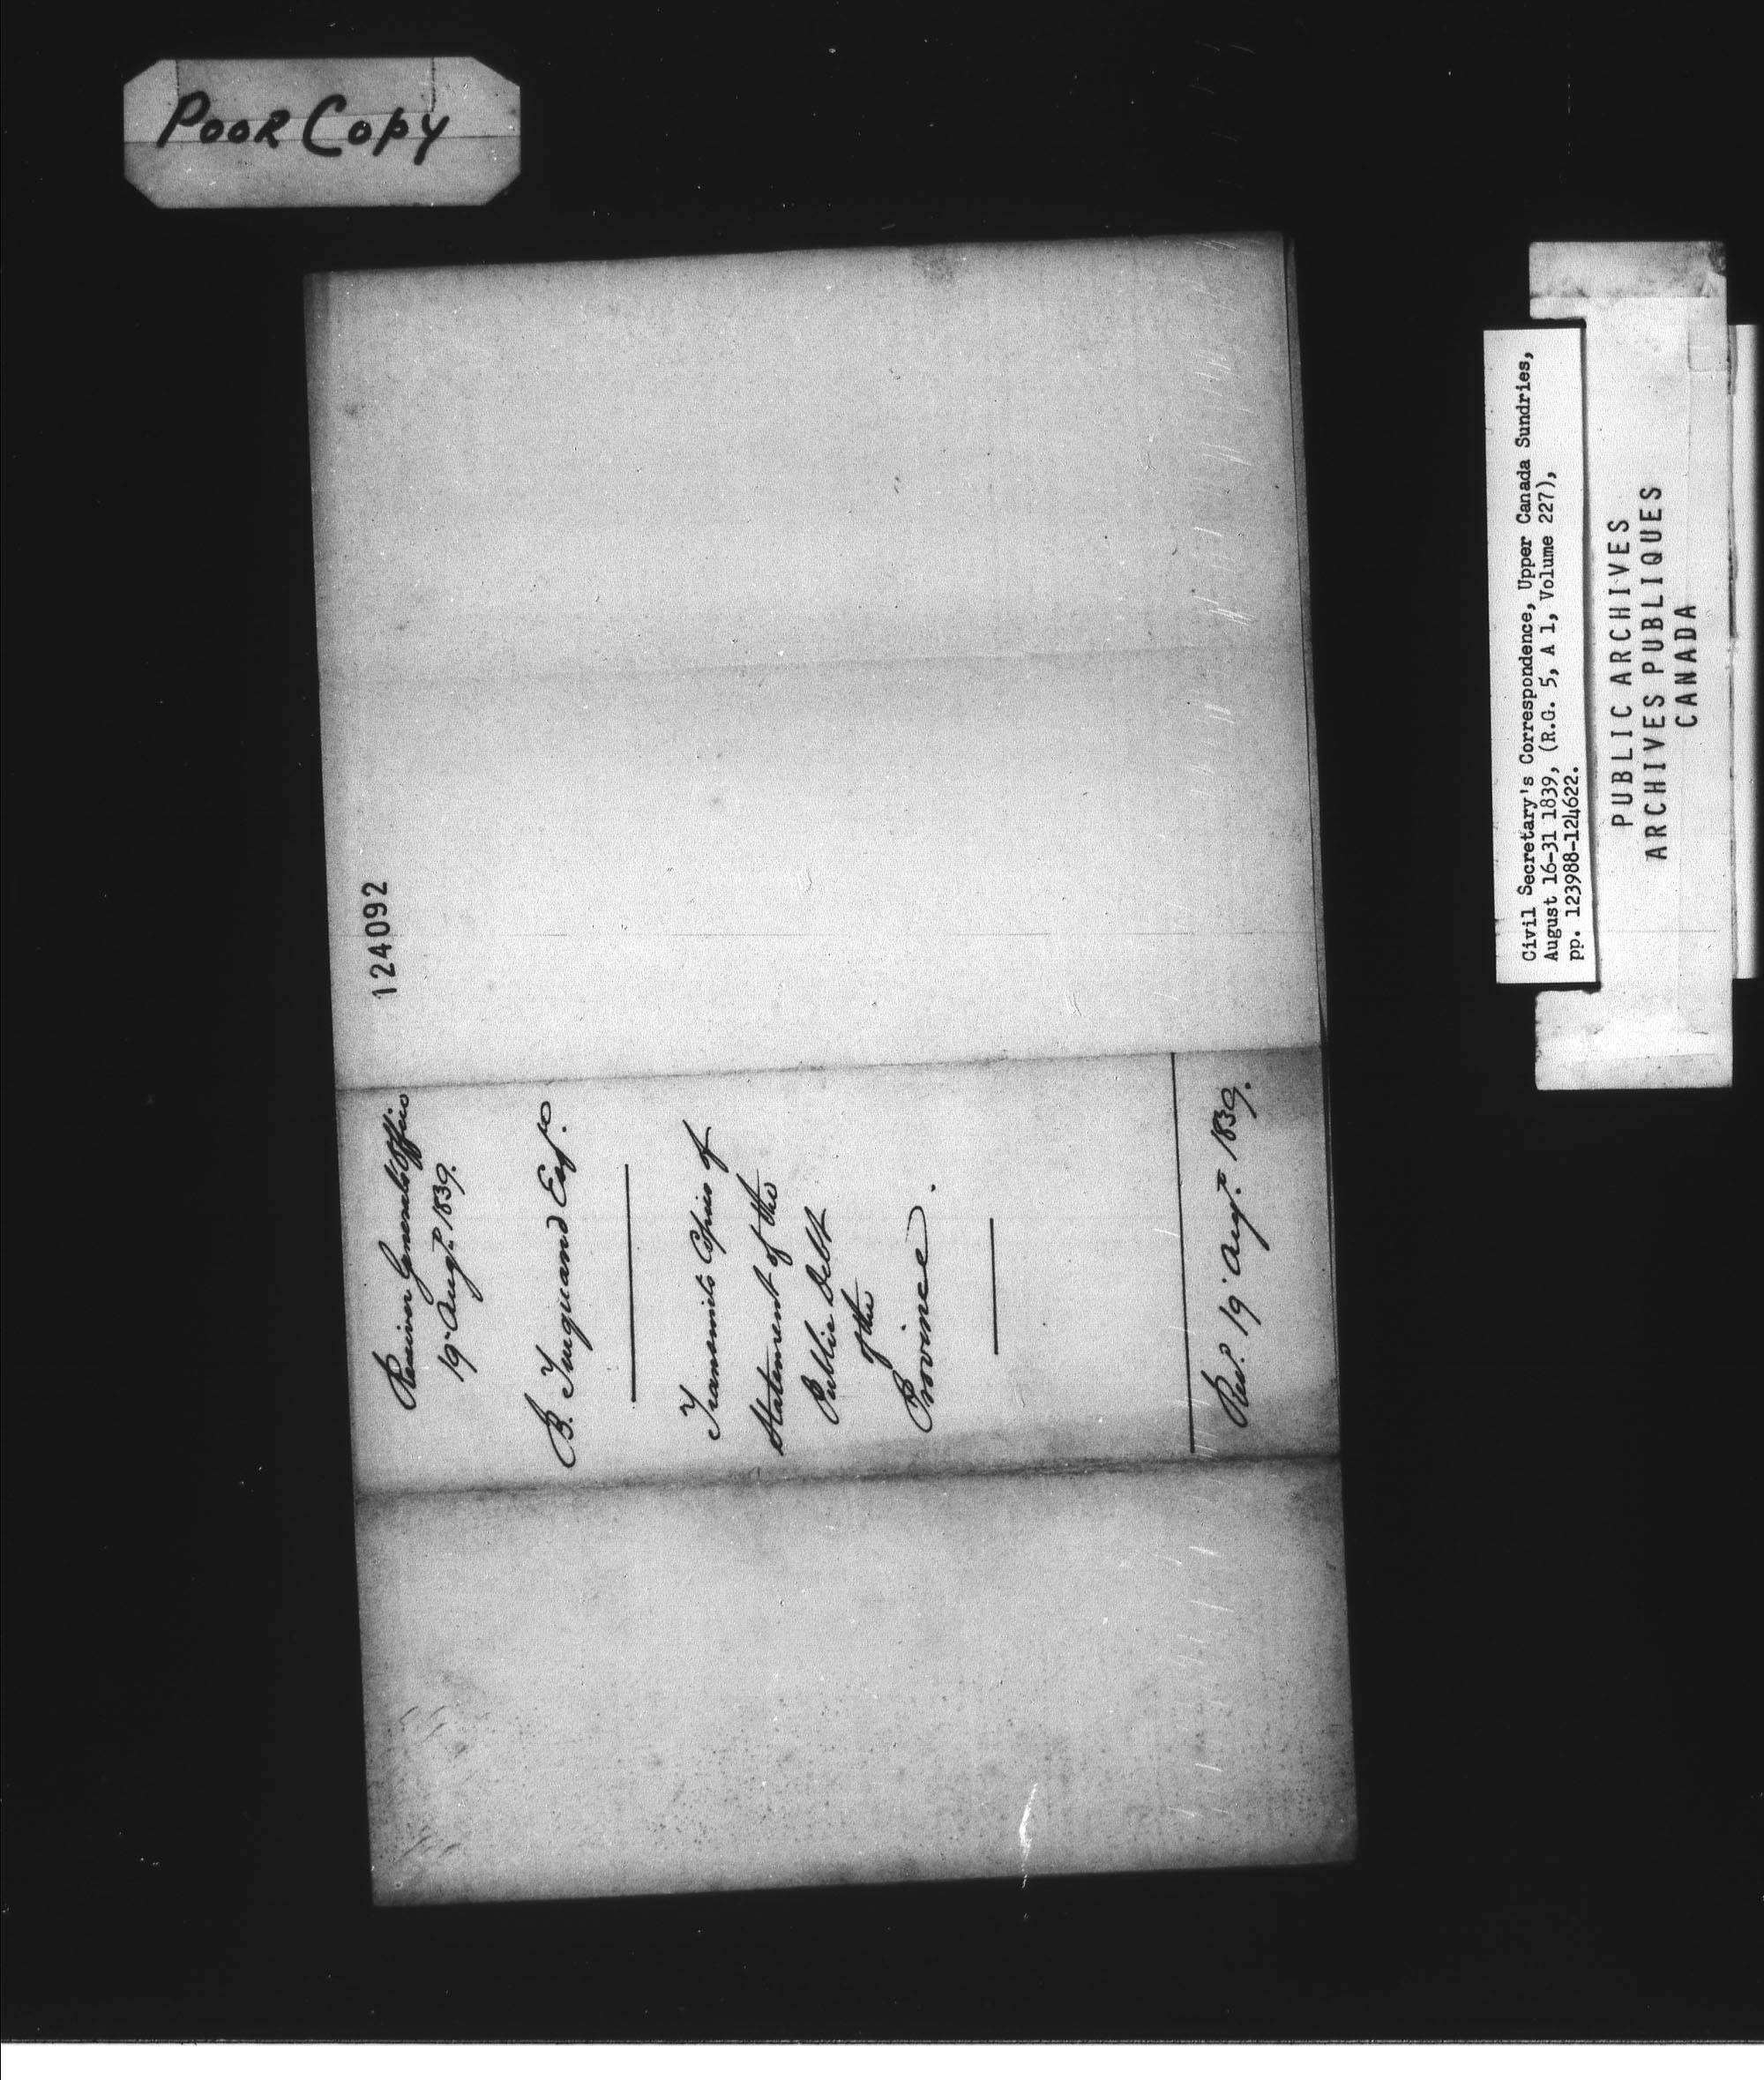 Poor Copy
124092
Receiver General's Office
19 Augt. 1839.
B. Turquand Esqre.
Transmits Copies of
Statement of the
Public Debt
of the
Province.
Recd. 19 Augt. 1839.
Civil Secretary's Correspondence, Upper Canada Sundries,
August 16-31 1839, (R.G. 5, A 1, Volume 227),
pp. 123988-124622.
PUBLIC ARCHIVES
ARCHIVES PUBLIQUES
CANADA